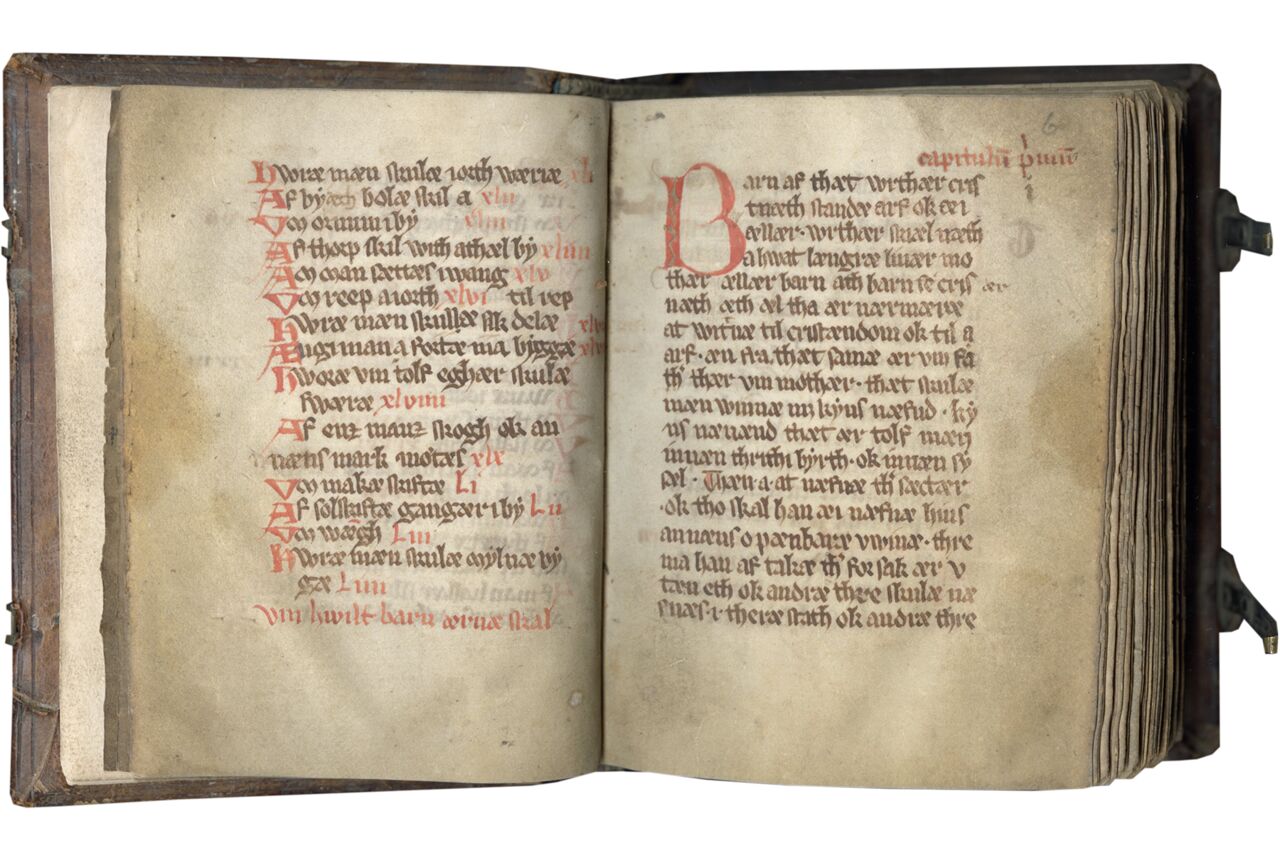 hworæ mæn skulæ iorth wæriæ xli
Af by bolæ skil a xlii
Vm ornum i by xliii
Af thorp skil with athæl by xliiii
A man sættæs i wang xlv
Vm reep a iorth xlvi til rep
Hwræ mæn skullæ sik delæ
Ængi man a fortæ ma byggæ
hworæ vm tolf eghær skulæ
swæræ xlviiii
Af enz manz skogh ok an
nærns mark motæs
Vm makæ skiftæ Li
Af solskiftæ gangær i by Lii
Vm wægh Liii
Hworæ mæn skulæ mylnæ by
gæ Liiii
Vm hwilt barn ærnæ skal
6
capitulū pimū
Barn af thæt wrthær cris
tnæth standæ arf ok æi
ællær · wrthær skæl næth
a hwat længræ liuær mo
thær ællær barn ath barn se cris ær
næth æth æl tha ær nærmæræ
at witnæ til cristændom ok til a
arf · æn fra thæt samæ ær vm fa
th thær vm mothær · thæt skulæ
mæn winnæ mæ kyns næfnd · ky
ns næuænd thæt ær tolf mæn
innæn thrithi byrth · ok innæn sy
sæl · Thæn a at næfnæ th sæctær
· ok tho skal han æi næfnæ hins
annæns opænbaræ vwinæ · thre
ma han af takæ th forsak ær v
tæn eth ok andræ thre skulæ næ
fnæs · i theræ stath ok andræ thre